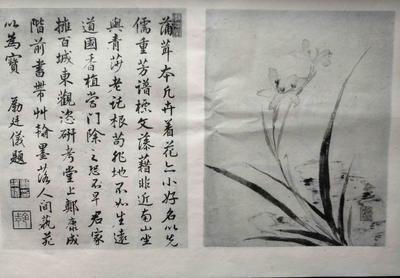 蒲茸本凡卉着花亦小好名以先
儒重芳譜標文藻藉非近南山坐
與青莎老託根苟非地不如生遠
道國香植當門除之恐不早君家
擁百城東觀恣研考堂上鄭康成
階前書帶艸翰墨落人間藝苑
以為寶 勵廷儀題